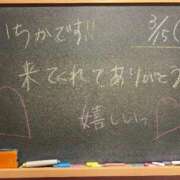 いちかです!!
3/5(
来てくれてありがとう
嬉しいっ